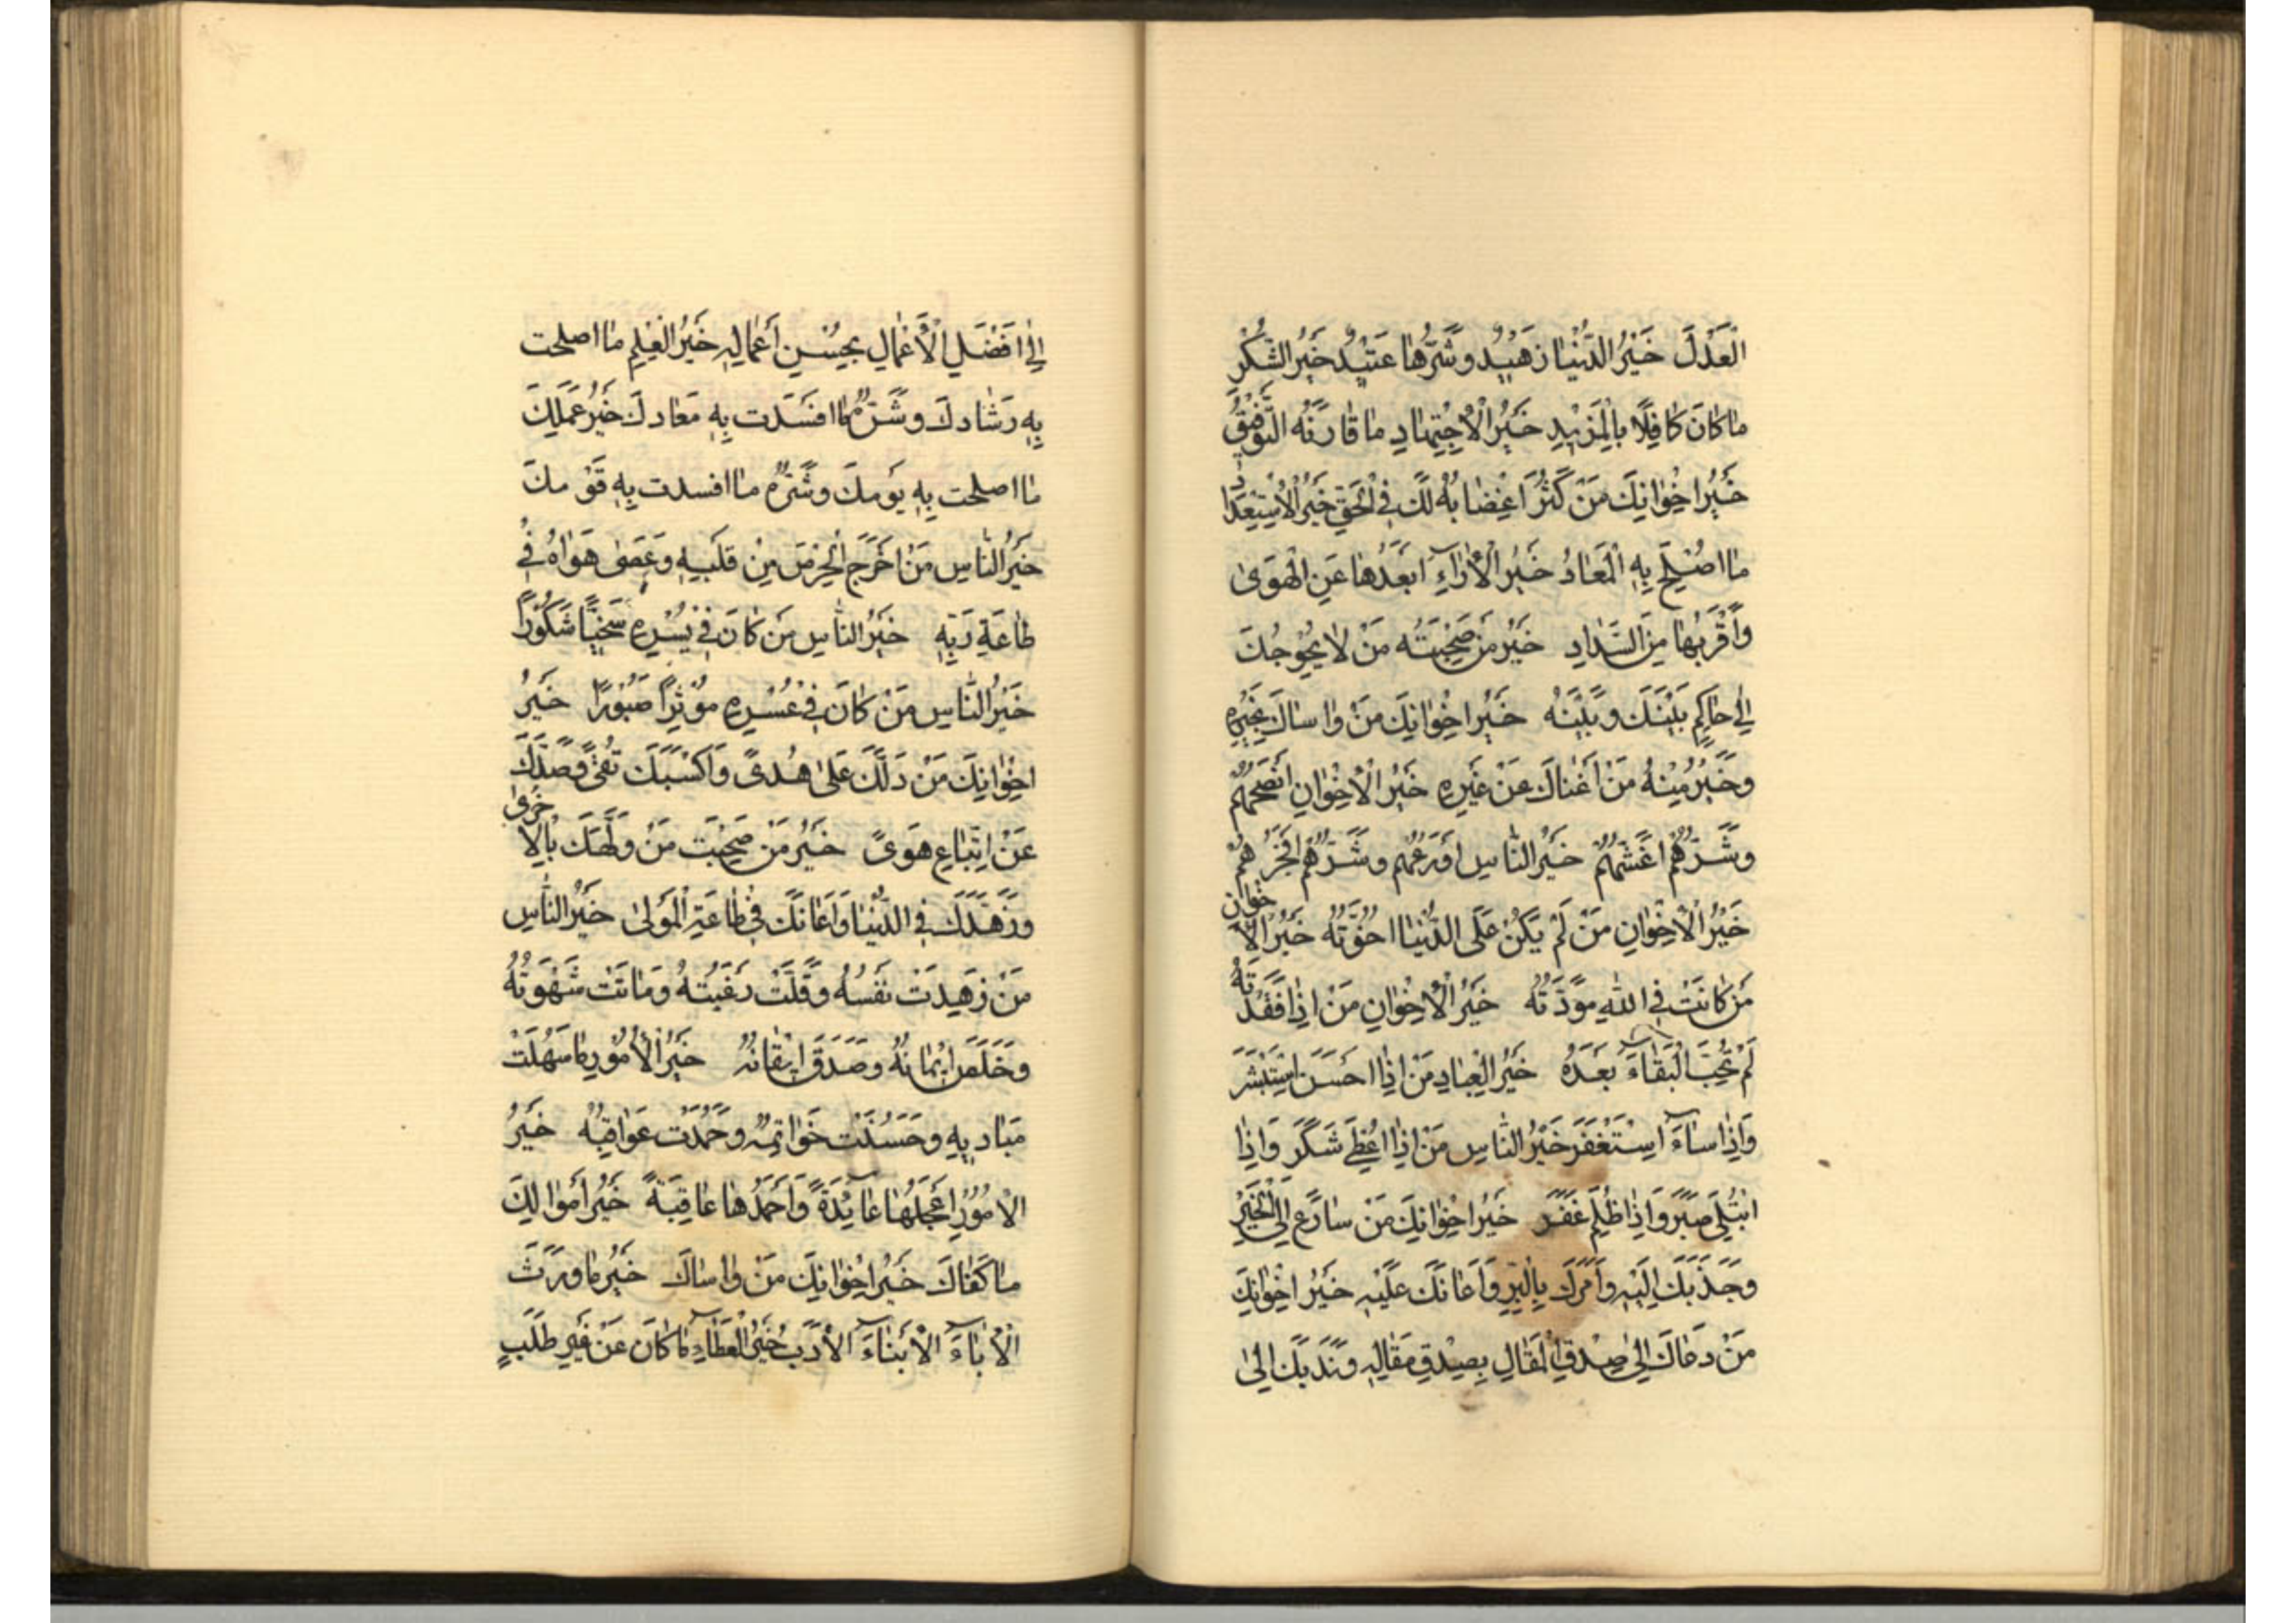 الْعَدْلَ خَيْرُ الدُّنْيَا زَهِيدٌ وَشَرُّهَا عَتِيدٌ خَيْرُ الشُّكْرِ
مَا كَانَ كَافِلًا بِالْمَزِيْدِ خَيْرُ الْاِجْتِهَادِ مَا قَارَنَهُ التَّوْفِيْقُ
خَيْرُ اِخْوَانِكَ مَنْ كَثُرَ اغْضَابُهُ لَكَ فِي الْحَقِّ خَيْرُ الْاِسْتِعْدَادِ
مَا اصْلِحَ بِهِ الْمَعَادُ خَيْرُ الْآرَاءِ ابْعَدُهَا عَنِ الْهَوَى
وَاَقْرَبُهَا مِنَ السَّدَادِ خَيْرُ مَنْ صَحِبْتَهُ مَنْ لَا يُحْوِجُكَ
اِلَى حَاكِمٍ بَيْنَكَ وَبَيْنَهُ خَيْرُ اِخْوَانِكَ مَنْ وَاسَاكَ بِخَيْرِهِ
وَخَيْرٌ مِنْهُ مَنْ اَغْنَاكَ عَنْ غَيْرِهِ خَيْرُ الْاِخْوَانِ اَنْصَحُهُمْ
وَشَرُّهُمْ اَغَشُّهُمْ خَيْرُ النَّاسِ اَوْرَعُهُمْ وَشَرُّهُمْ افْجَرُهُمْ
خَيْرُ الْاِخْوَانِ مَنْ لَمْ يَكُنْ عَلَى الدُّنْيَا اخُوَّتُهُ خَيْرُ الْاِخْوَانِ
مَنْ كَانَتْ فِي اللهِ مَوَدَّتُهُ خَيْرُ الْاِخْوَانِ مَنْ اِذَا فَقَدْتَهُ
لَمْ تُحِبَّ الْبَقَاءَ بَعْدَهُ خَيْرُ الْعِبَادِ مَنْ اِذَا احْسَنَ اسْتَبْشَرَ
وَاِذَا سَاءَ اسْتَغْفَرَ خَيْرُ النَّاسِ مَنْ اِذَا اعْطِيَ شَكَرَ وَاِذَا
ابْتُلِيَ صَبَرَ وَاِذَا ظُلِمَ غَفَرَ خَيْرُ اِخْوَانِكَ مَنْ سَارَعَ اِلَى الْخَيْرِ
وَجَذَبَكَ اِلَيْهِ وَاَمَرَكَ بِالْبِرِّ وَاَعَانَكَ عَلَيْهِ خَيْرُ اخْوَانِكَ
مَنْ دَعَاكَ اِلَى صِدْقِ الْمَقَالِ بِصِدْقِ مَقَالِهِ وَنَدَبَكَ اِلَى
اِلَى افْضَلِ الْاَعْمَالِ بِحُسْنِ اَعْمَالِهِ خَيْرُ الْعِلْمِ مَا اصلحت
بِهِ رَشَادَكَ وَشَرُّهُ مَا افْسَدَت بِهِ مَعَادَكَ خَيْرُ عَمَلِكَ
مَا اصلحت بِهِ يَومكَ وشَرُّهُ مَا افسدت بِهِ قَوْمكَ
خَيْرُ النَّاسِ مَنْ اخْرَجَ الْحِرْصَ مِنْ قَلْبِهِ وَعَصَى هَوَاهُ فِي
طَاعَةِ رَبِّهِ خَيْرُ النَّاسِ مَنْ كَانَ فِي يُسْرِهِ سَخِيًّا شَكُوْرًا
خَيْرُ النَّاسِ مَنْ كَانَ فِي عُسْرِهِ مُؤْثِرًا صَبُوْرًا خَيْرُ
اِخْوَانِكَ مَنْ دَلَّكَ عَلَى هُدىً وَاَكْسَبَكَ تُقىً وَصَدَّكَ
عَنْ اِتِّبَاعِ هَوَىً خَيْرُ مَنْ صَحِبْتَ مَنْ وَلَّهَكَ بِالْاُخْرَى
وَزَهَّدَكَ فِي الدُّنْيَا وَاَعَانَكَ فِي طَاعَةِ الْمَوْلَى خَيْرُ النَّاسِ
مَنْ زَهِدَتْ نَفْسُهُ وَقَلَّتْ رَغْبَتُهُ وَمَاتَتْ شَهْوَتُهُ
وَخَلَصَ اِيْمَانُهُ وَصَدَقَ اِيْقَانُهُ خَيْرُ الْاُمُوْرِ مَا سَهُلَتْ
مَبَادِيهِ وَحَسُنَتْ خَوَاتِمُهُ وَحُمِدَتْ عَوَاقِبُهُ خَيْرُ
الْاُمُوْرِ اَعْجَلُهَا عَائِدَةً وَاَحْمَدُهَا عَاقِبَةً خَيْرُ اَمْوَالِكَ
مَا كَفَاكَ خَيْرُ اِخْوَانِكَ مَنْ وَاسَاكَ خَيْرُ مَا وَرَّثَ
الْآبَاءَ الْاَبْنَاءَ الْاَدَبُ خَيْرُ الْعَطَاءِ مَا كَانَ عَنْ غَيْرِ طَلَبٍ